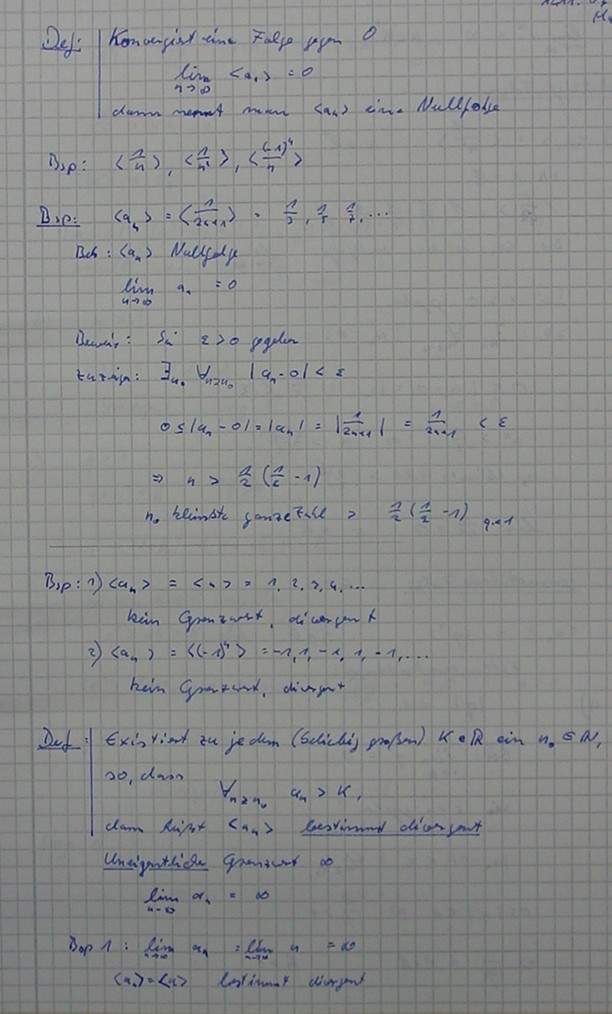 Def: Konvergiert eine Folge gegen 0
lim n→∞ <aₙ> = 0
dann nennt man <aₙ> eine Nullfolge
Bsp: <1/n>, <1/n²>, <(-1)ⁿ/n>
Bsp: <aₙ> = <1/(2n+1)> = 1/3, 1/5, 1/7, ...
Beh: <aₙ> Nullfolge
lim n→∞ aₙ = 0
Beweis: Sei ε>0 gegeben
zu zeigen: ∃n₀ ∀n≥n₀ |aₙ-0| < ε
0≤|aₙ-0| = |aₙ| = |1/(2n+1)| = 1/(2n+1) < ε
⇒ n > 1/2 (1/ε - 1)
n₀ kleinste ganze Zahl > 1/2 (1/ε - 1)
Bsp: 1) <aₙ> = <n> = 1, 2, 3, 4, ...
kein Grenzwert, divergent
2) <aₙ> = <(-1)ⁿ> = -1, 1, -1, 1, -1, ...
kein Grenzwert, divergent
Def: Existiert zu jedem (beliebig großen) K∈ℝ ein n₀∈ℕ,
so, dass
∀n≥n₀ aₙ > K,
dann heißt <aₙ> bestimmt divergent
Uneigentlicher Grenzwert ∞
lim n→∞ aₙ = ∞
Bsp 1: lim n→∞ aₙ = lim n→∞ n = ∞
<aₙ>=<n> bestimmt divergent